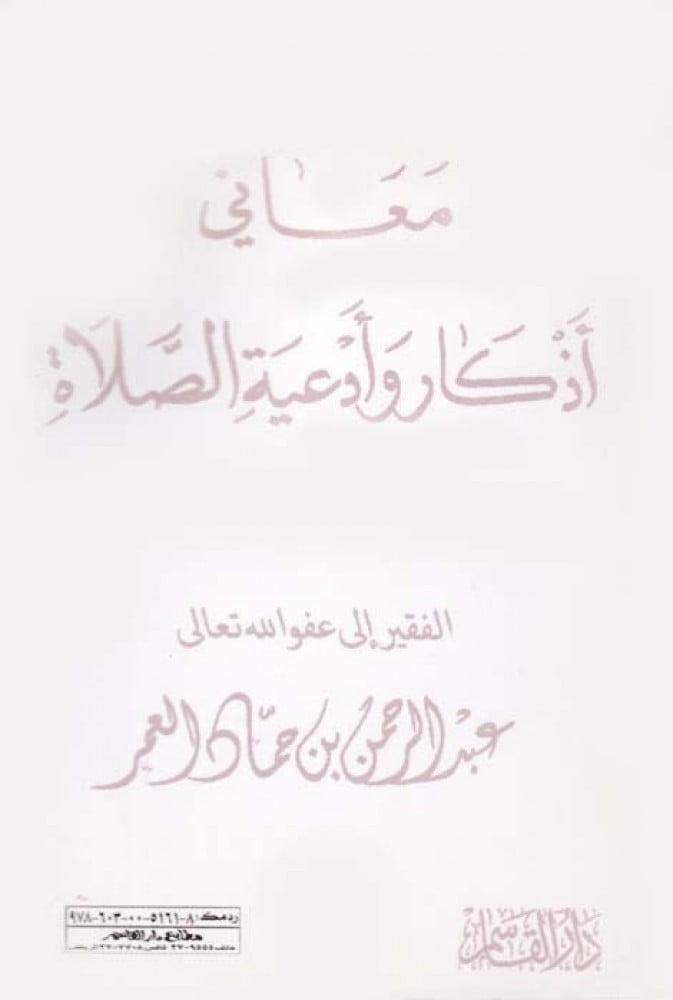 مَعَاني
أَذْكَار وَأَدْعِيَةِ الصَّلَاةِ
الفقير إلى عفو الله تعالى
عبْد الرحمن بن حمَّاد العمر
ردمك: ٨-٥١٦١-٠٠-٦٠٣-٩٧٨
مطابع دار القاسم
دَارُ القَاسِم